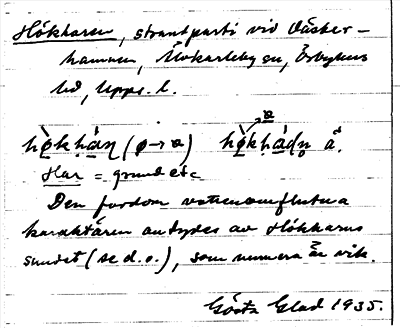 Hökharen, strandparti vid Väster-
hamnen, Älvkarleby sn, Örbyhus
hd, Upps. l.
høkhán (ø→ɵ) høkhádn å.
Har = grund etc
Den fordom vattenomflutna
karaktären antydes av Hökkarns
sundet (se d.o.), som numera är vik.
Gösta Glad 1935.